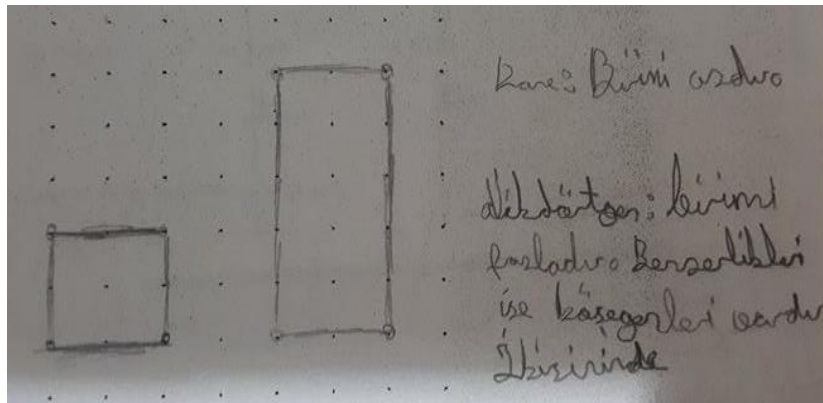 Kare: Birimi azdır.
Dikdörtgen: birimi
fazladır. Benzerlikleri
ise köşegenleri vardır
İkisininde